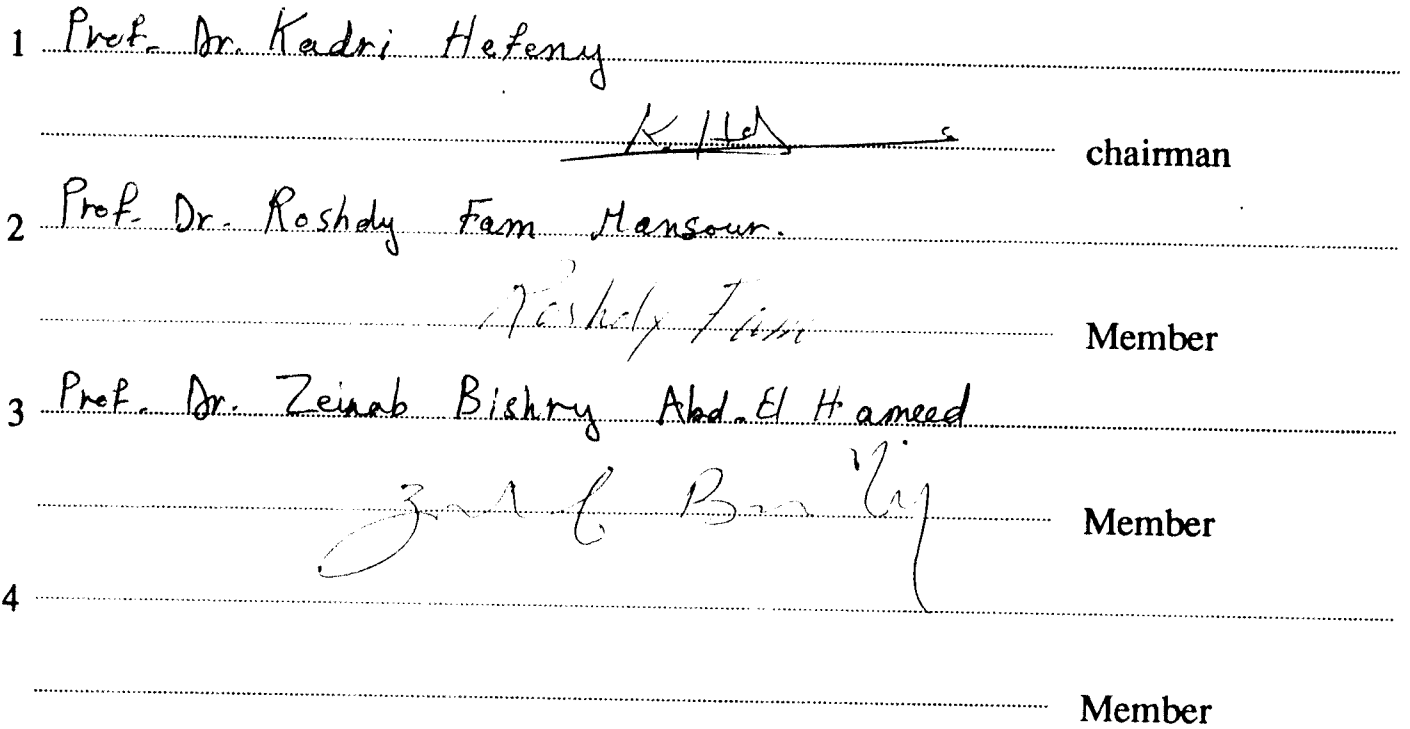 1 Prof. Dr. Kadri Hefeny
chairman
2 Prof. Dr. Roshdy Fam Mansour.
Roshdy Fam Member
3 Prof. Dr. Zeinab Bishry Abd-El Hameed
Member
4
Member